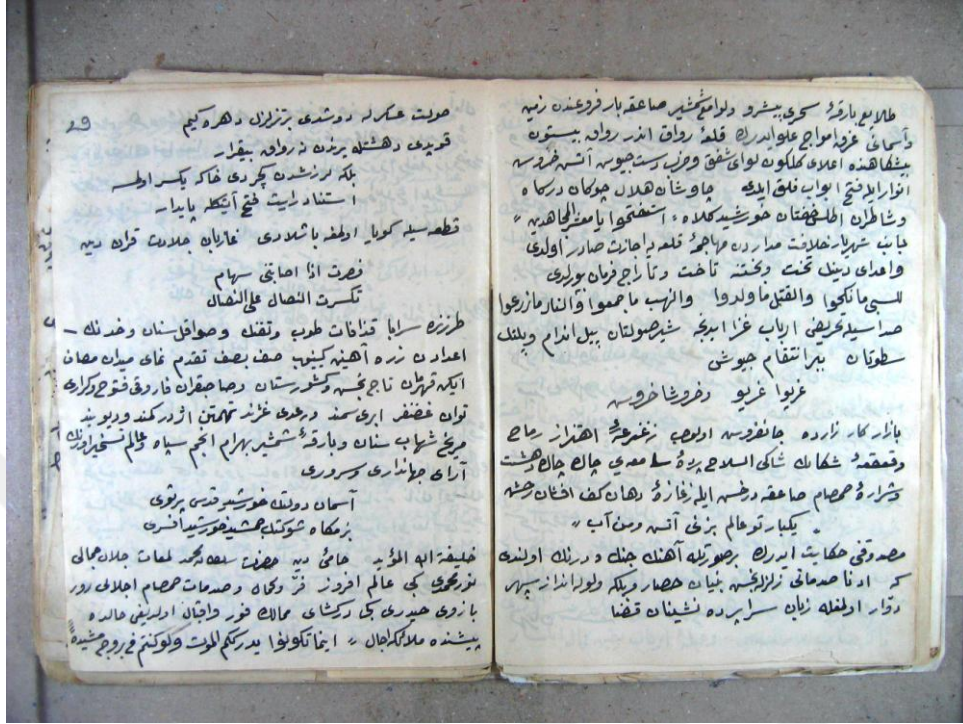 طلایع بارقهٔ سحری پیشرو ولوامع شمشیر صاعقه بار فروغندن زمین
وآسمانی غرق امواج علو ایدرك قلهٔ رواق اندر رواق بیستون
پیشکاهنده اعلای کلکون لوای شفق وخروس آتش خروش
انوار ایله فتح ابواب فلق ایدی چاوشان هلال چوکان درکاه
وشاطران اطلس خورشید کلاه استفتحوا یا معشر المجاهدین
جانب شهریار خلافت مداردن مهاجمهٔ قلعه یه اجازت صادر اولدی
واعدای دینك تحت وبخته تاخت وتاراج فرمان بورلدی
للسبی ما نکحوا والقتل ما ولدوا والنهب ما جمعوا والنار ما زرعوا
صداسیله تحریض ارباب غزا ایدیجه پیل اندام وپلنك
سطوتان ببر انتقام جیوشی
غریوا غریو وخروشا خروش
بازار کارزارده جانفروش اولوب اهتزاز رماح
وقعقعهٔ شاکی السلاح پردهٔ چاك چاك دهشت
وشرارهٔ صمصام صاعقه درخش ایله دهان کف افشان رخش
یکبار تو عالم بزنی آتش ومن آب
مصدوقنی حکایت ایدرك برصورتله آهنك جنك ودرنك اولندی
که ادنا صدماتی زلزله بخش بنیان حصار وبلکه ولوله انداز سپهر
دوار اولمغله زبان سراپرده نشینان قضا
29
صولت عسکرله دوشدی تزلزله دهره کیم
قویدی دهشتله یرنده نه رواق بیقرار
بلکه لرزشدن کچردی خاکه یکسر اولمسه
استناد رایت فتح آیتکله پایدار
قطعه سیله کویا اولمغه باشلادی غازیان جلادت قران دیه
فصرت اذا اصابتنی سهام
تکسرت النصال علی النصال
طرزنده سراپا قذافات طوب وتفنك وصواقل سنان وخدنك
اعدادن زره آهنین کییوب صف بصف تقدم نمای میدان مصاف
ایکن قهرمان تاج بخش وکشورستان وصاحبقران فاروقی فتوح وکراری
توان غضنفر ابری سمند ورعدی غرند تهمتن اژدر کمند ودیوبند
مریخ شهاب سنان وبارقهٔ شمشیر بهرام انجم سپاه وعالم تسخیر اورنك
آرای جهانداری وسروری
آسمان دولتك خورشید قدسی پرتوی
بزمکاه شوکتك جمشید خورشید افسری
خلیفة الله المؤید حامئ دین حضرت سلطان محمد لمعات جلال جمالی
نور محمدی کبی عالم افروز فر وکمان وصدمات صمصام اجلالی زور
بازوی حیدری کبی رکشای ممالك فوز واقبال اولدیغی حالده
پیشنده ملائکه رجال اینما تکونوا یدرککم الموت ولو کنتم فی بروج مشیدة